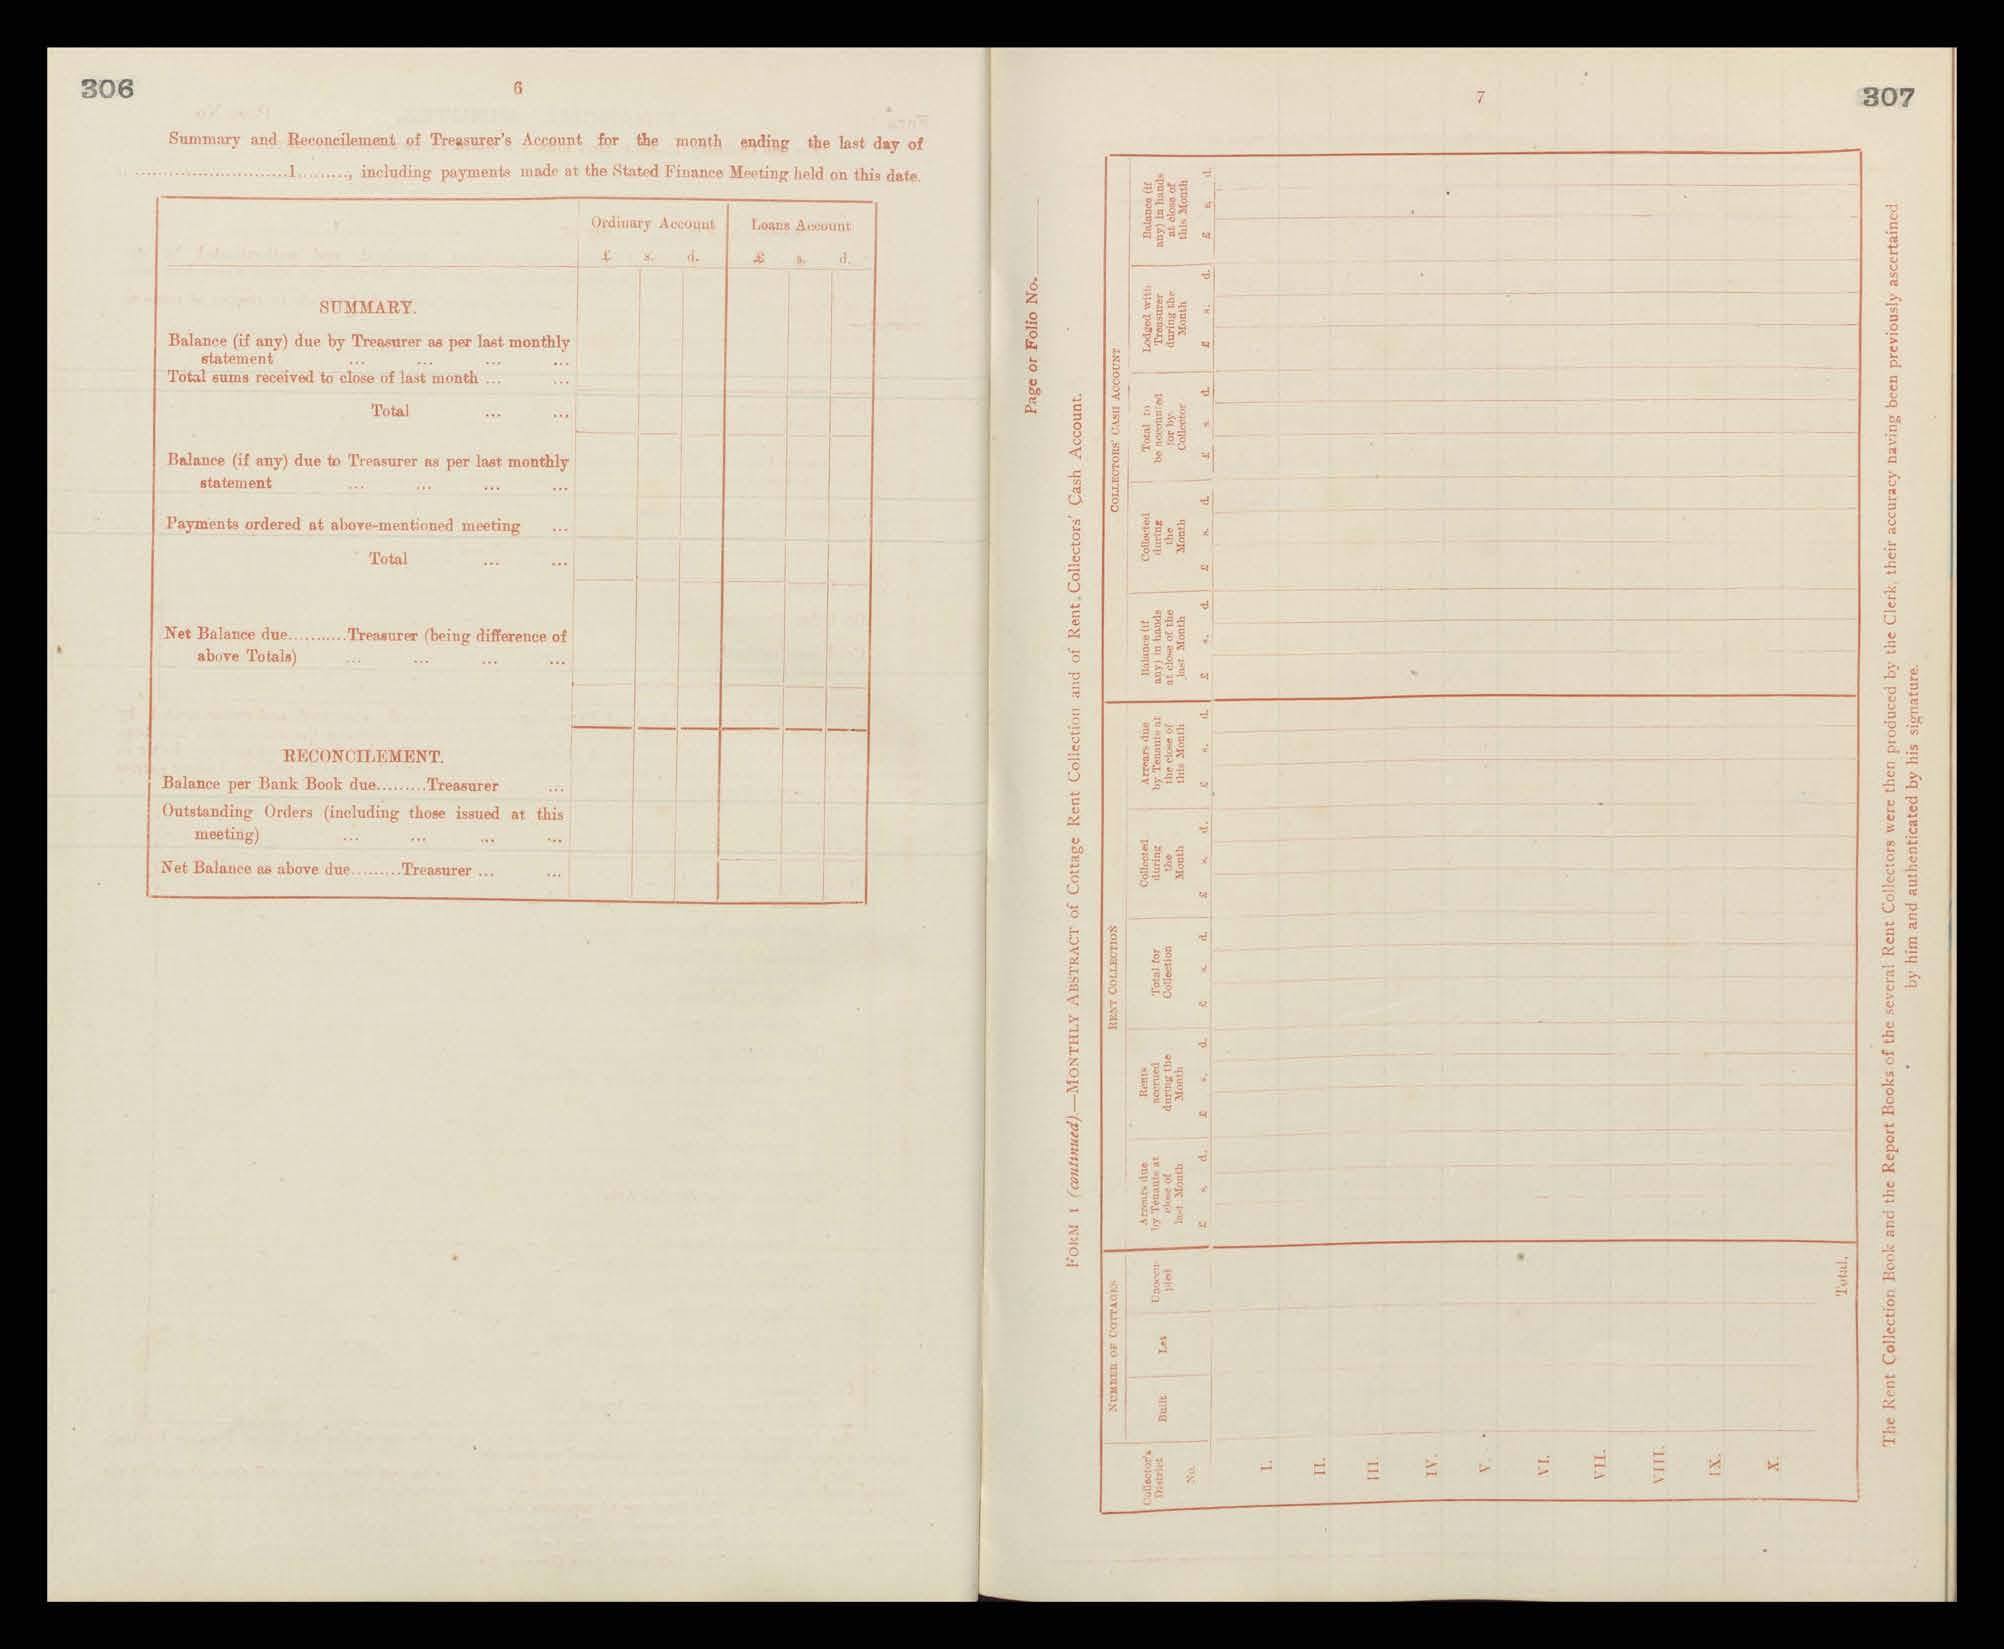 306
6
Summary and Reconcilement of Treasurer's Account for the month ending the last day of
............................1........., including payments made at the Stated Finance Meeting held on this date.
Ordinary Account Loans Account
£ s. d. £ s. d.
SUMMARY.
Balance (if any) due by Treasurer as per last monthly
statement ... ... ... ...
Total sums received to close of last month ... ...
Total ... ...
Balance (if any) due to Treasurer as per last monthly
statement ... ... ... ...
Payments ordered at above-mentioned meeting ...
Total ... ...
Net Balance due...........Treasurer (being difference of
above Totals) ... ... ... ...
RECONCILEMENT.
Balance per Bank Book due.........Treasurer ...
Outstanding Orders (including those issued at this
meeting) ... ... ... ...
Net Balance as above due.........Treasurer ... ...
7
307
Page or Folio No.
FORM 1 (continued).—MONTHLY ABSTRACT of Cottage Rent Collection and of Rent Collectors' Cash Account.
NUMBER OF COTTAGES RENT COLLECTION COLLECTORS' CASH ACCOUNT
Collector's
District
No.
Built
Let
Unoccu-
pied
Arrears due
by Tenants at
close of
last Month
£ s. d.
Rents
accrued
during the
Month
£ s. d.
Total for
Collection
£ s. d.
Collected
during
the
Month
£ s. d.
Arrears due
by Tenants at
the close of
this Month
£ s. d.
Balance (if
any) in hands
at close of the
last Month
£ s. d.
Collected
during
the
Month
£ s. d.
Total to
be accounted
for by
Collector
£ s. d.
Lodged with
Treasurer
during the
Month
£ s. d.
Balance (if
any) in hands
at close of
this Month
£ s. d.
I.
II.
III.
IV.
V.
VI.
VII.
VIII.
IX.
X.
Total.
The Rent Collection Book and the Report Books of the several Rent Collectors were then produced by the Clerk, their accuracy having been previously ascertained
by him and authenticated by his signature.